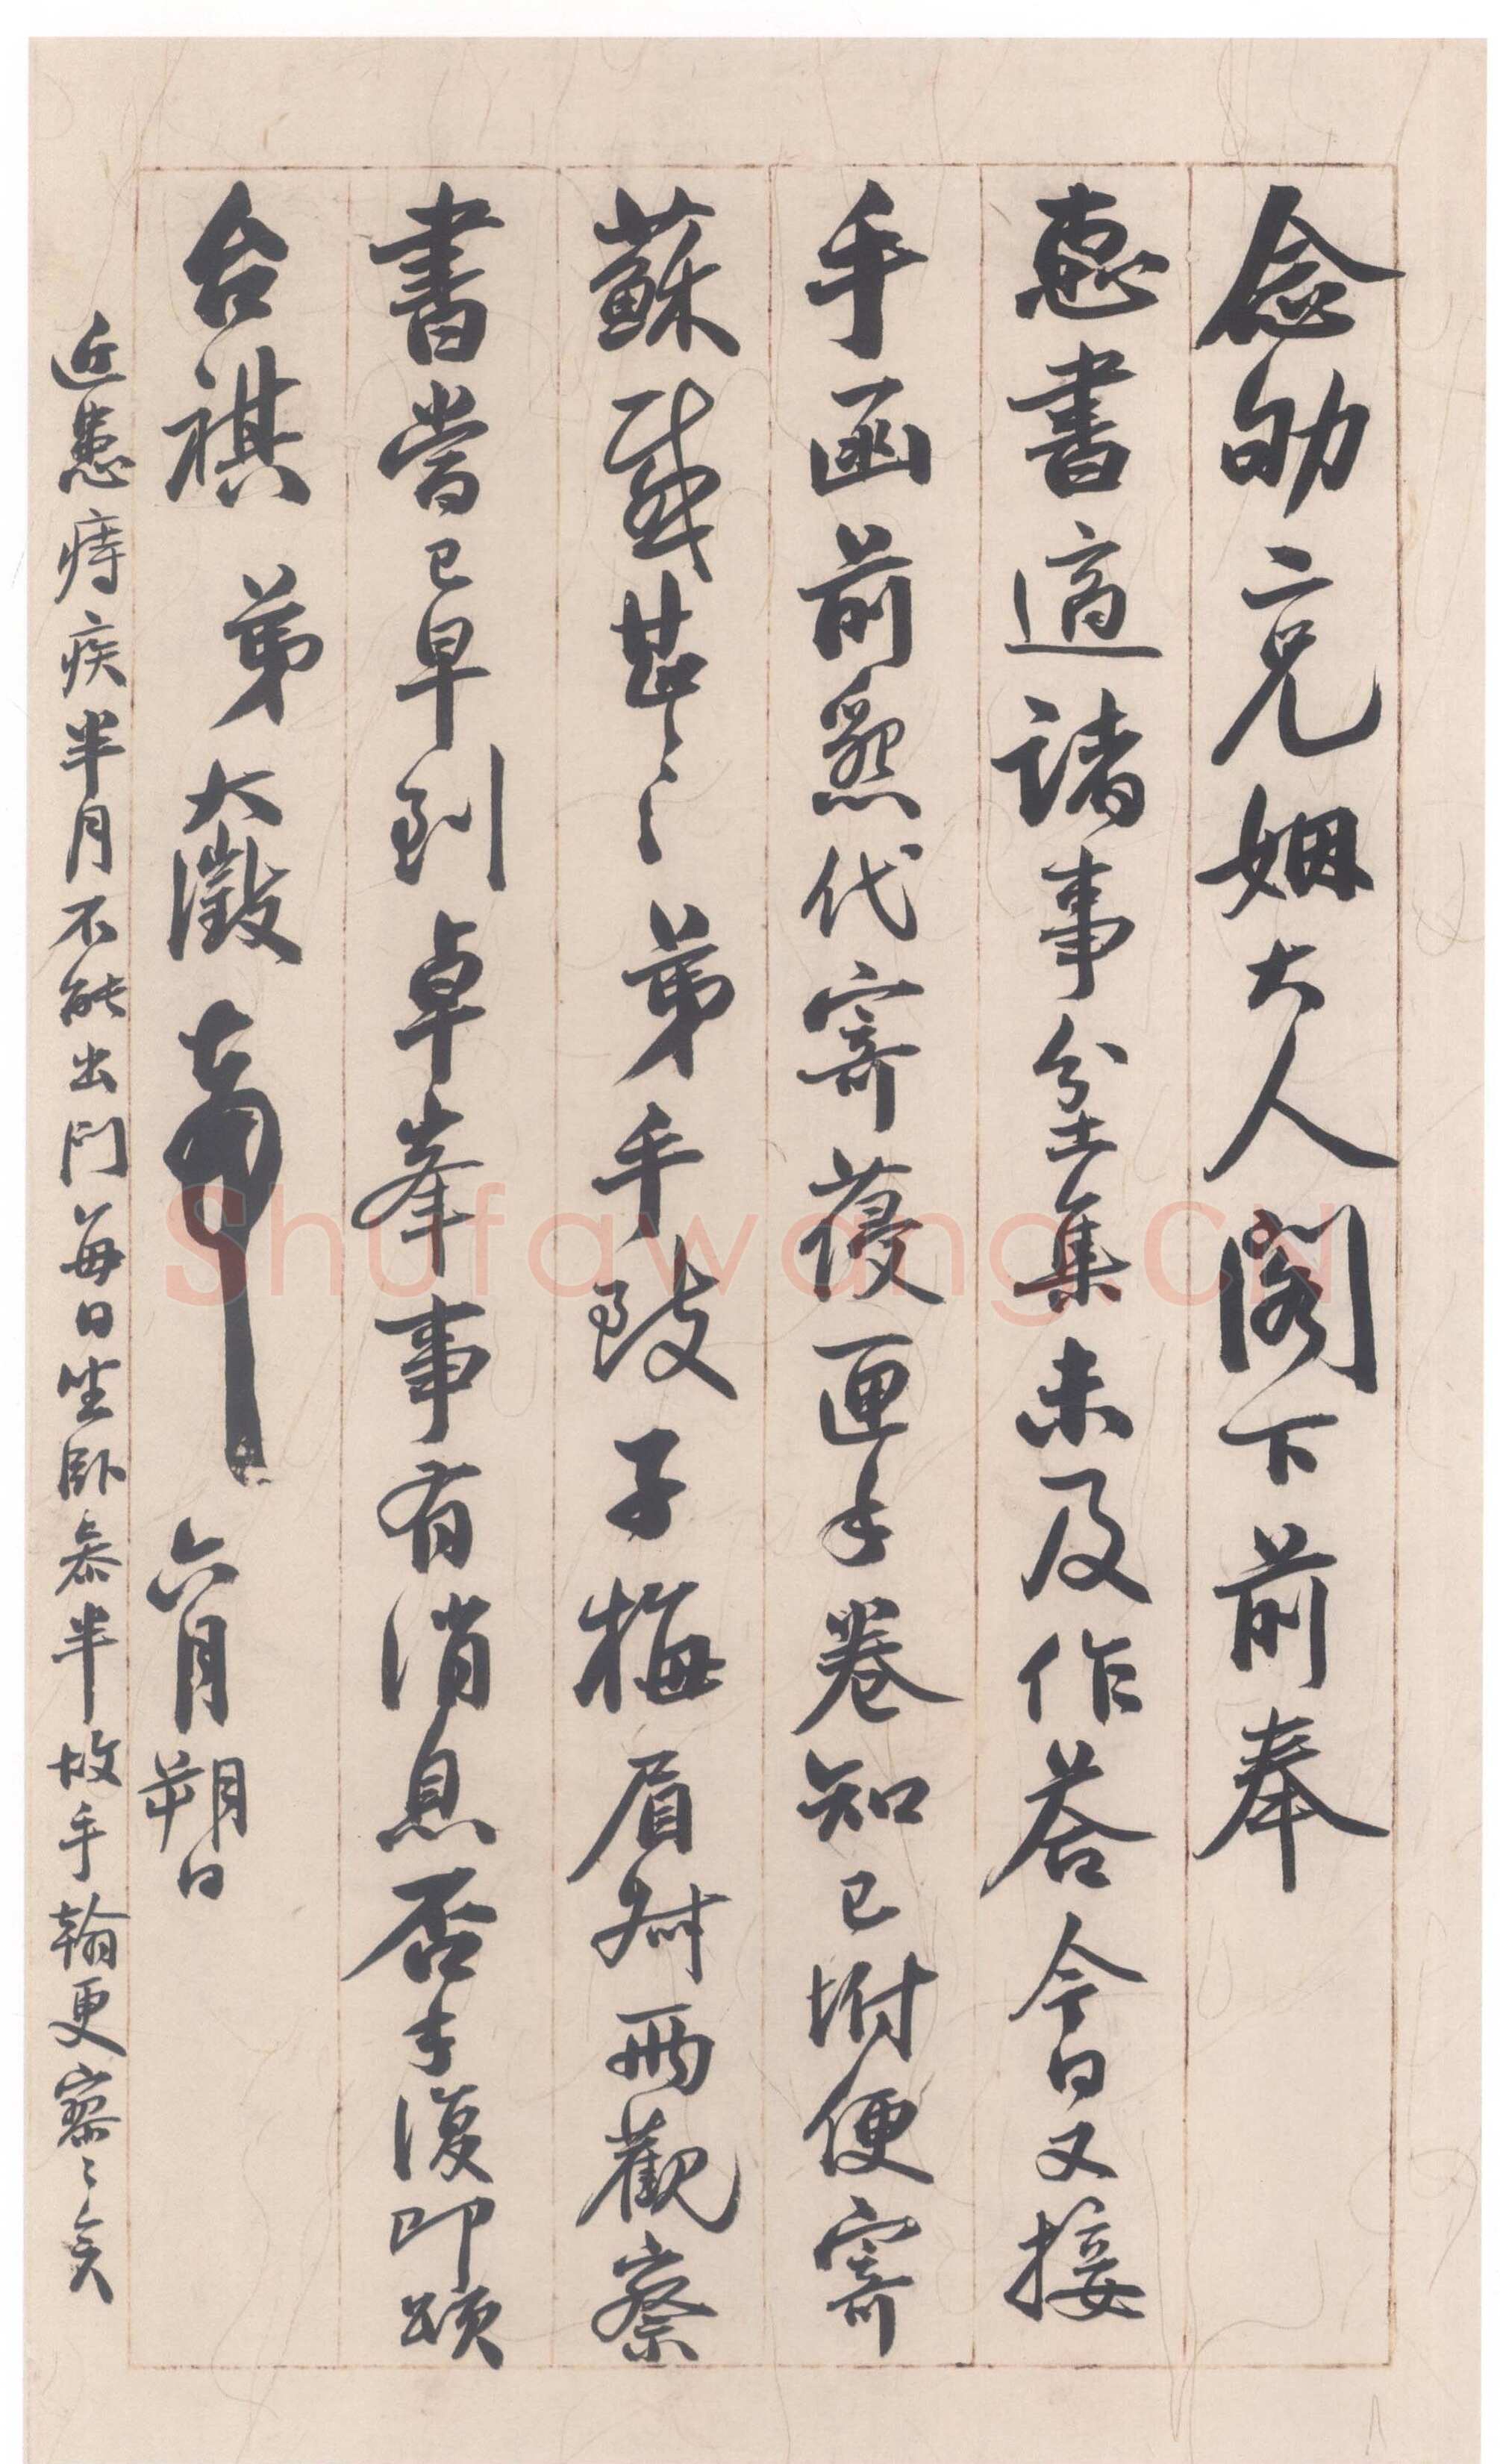 念劬二兄姻大人閣下前奉
惠書適諸事坌集未及作荅今日又接
手函前懇代寄薓匣手卷知已坿便寄
蘇感甚〻弟手致子梅眉叔兩觀察
書當已早到卓峯事有消息否手復即頌
台祺 弟大澂頓首 六月朔日
近患痔疾半月不能出門每日坐臥參半故手翰更寥〻矣
Shufawang.CN